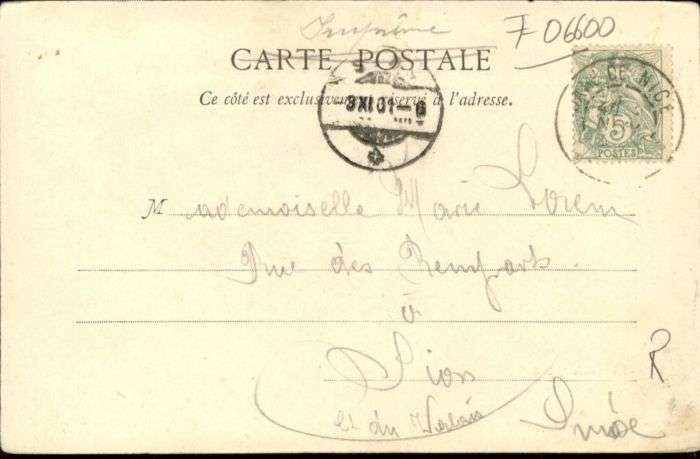 Imprimé
F 06600
CARTE POSTALE
Ce côté est exclusivement réservé à l'adresse.
9 XI 01 - 9
NICE
5
POSTES
Mademoiselle Marie Lorem
Rue des Remparts
à
Sion
Ct du Valais
Suisse
R